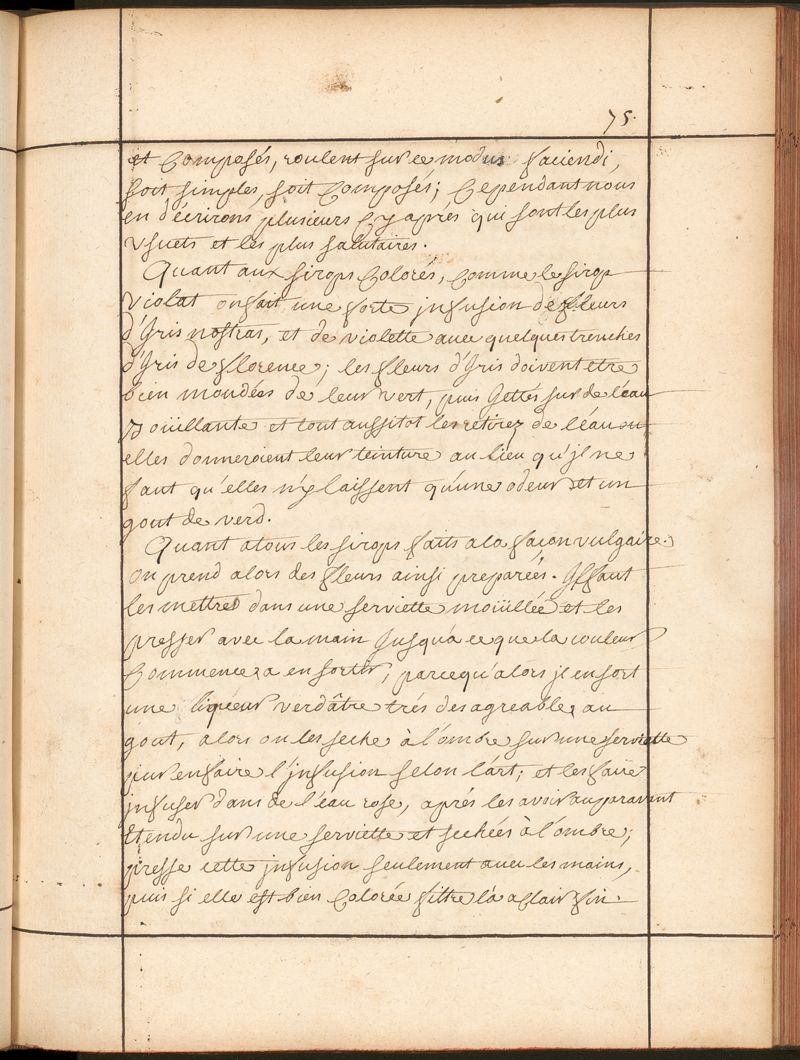 75.
et Composés, roulent sur ce modus faciendi,
soit simples, soit Composés; Cependant nous
en d'écrirons plusieurs Cy aprés qui sont les plus
Usuels et les plus salutaires.
Quant aux sirops Colorés, comme le sirop
violat on fait une forte jnfusion de fleurs
d'Iris nostras, et de violette avec quelques trenches
d'Iris de florence; les fleurs d'Iris doivent etre
bien mondées de leur vert, puis Jettés sur de l'éau
Boüillante et tout aussitot les retirez de l'éau ou
elles donneroient leur teinture au lieu qu'jl ne
faut qu'elles n'y laissent qu'une odeur et un
gout de verd.
Quant a tous les sirops faits a la façon vulgaire.
on prend alors des fleurs ainsi preparées. Jl faut
les mettre dans une serviette moüillée et les
presser avec la main Jusqu'a ce que la couleur
Commence a en sortir, parcequ'alors jl en sort
une liqueur verdâtre trés desagreable au
gout, alors on les seche à l'ombre sur une serviette
pour en faire l'jnfusion selon l'art; et les faire
jnfuser dans de l'éau rose, aprés les avoir auparavant
Etendu sur une serviette et sechées à l'ombre;
presse cette jnfusion seulement avec les mains,
puis si elle est bien Colorée filtre la a Clair fin.